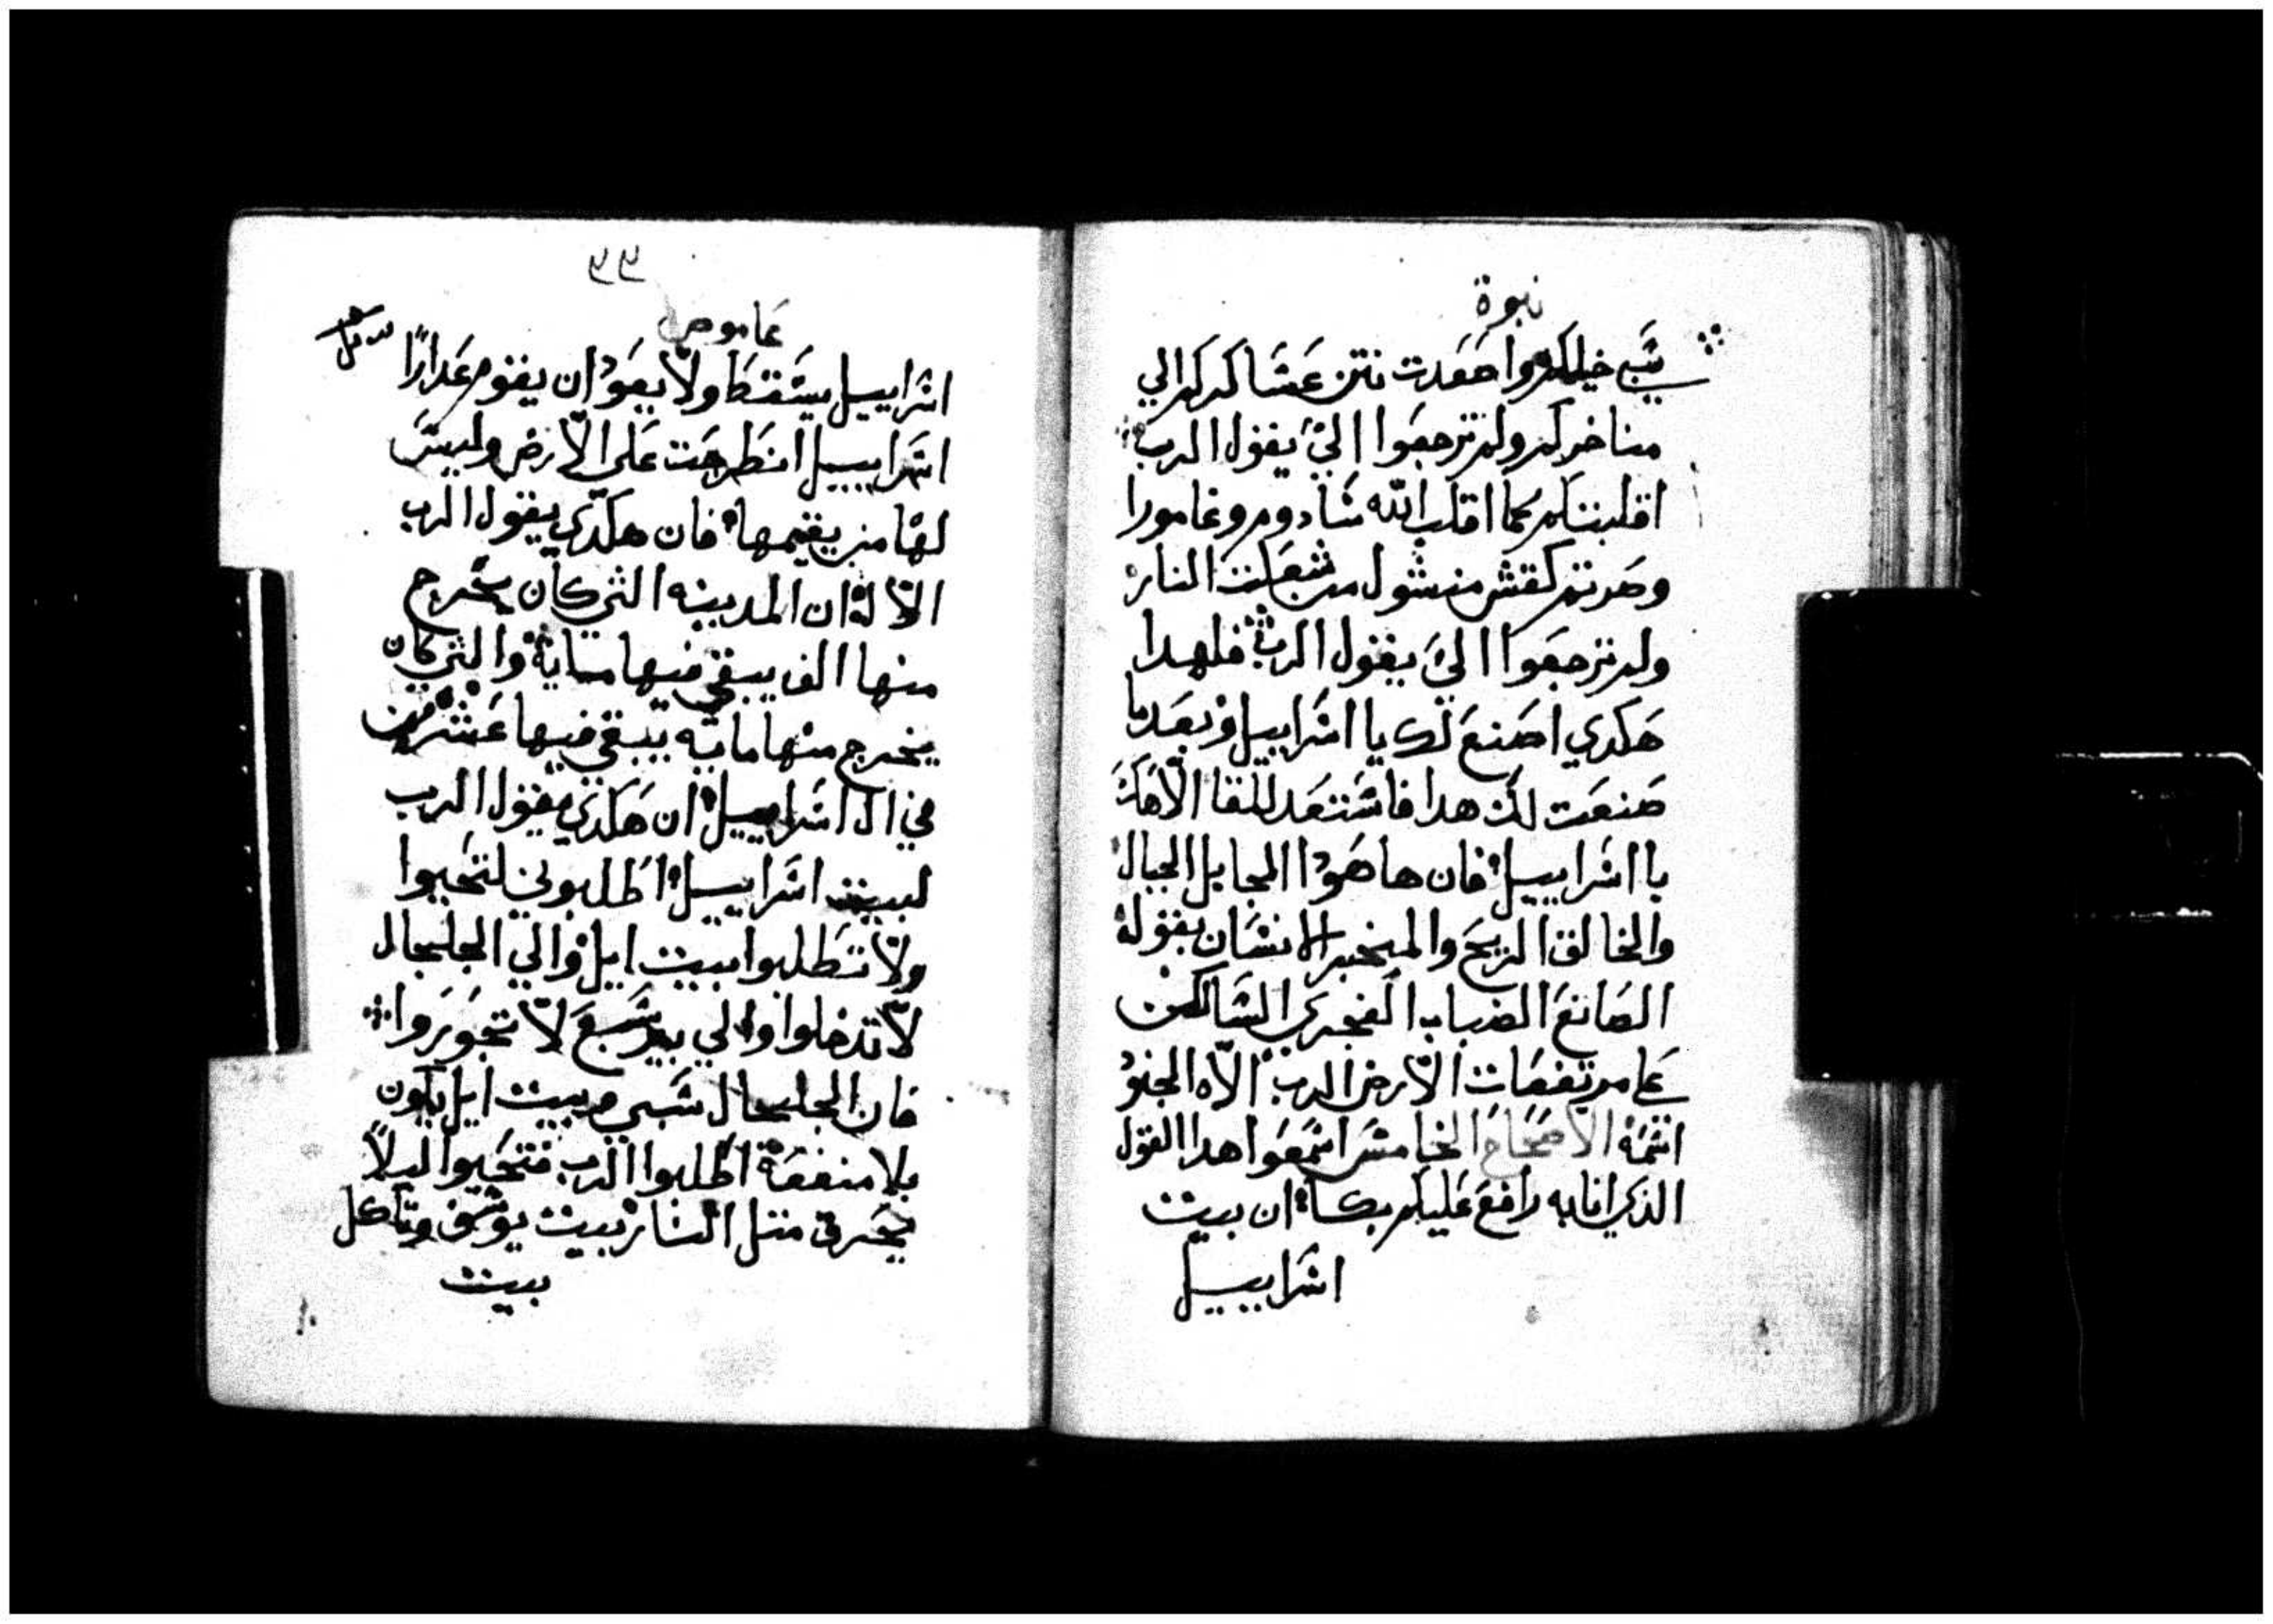 نبوة
سبي خيلكم واصعدت نتن عساكركم الي
مناخركم ولم ترجعوا اليّ يقول الرب
اقلبتكم كما اقلب الله سادوم وغامورا
وصرتم كقش منشول من شعلت النار
ولم ترجعوا اليّ يقول الرب فلهدا
هكدي اصنع لك يا اسراييل وبعدما
صنعت لك هدا فاستعد للقا الاهك
يا اسراييل فان ها هودا المجابل الجبال
والخالق الريح والمخبر الانسان بقوله
الصانع الضباب الفجري السالك
علي مرتفعات الارض الرب الاه الجنود
اسمه الاصحاح الخامس اسمعوا هدا القول
الذي انا به رافع عليكم بكاه ان بيت
اسراييل
عاموص
اسراييل يسقط ولا يعود ان يقوم عدارا
اسراييل انطرحت علي الارض وليس
لها من يقيمها فان هكدي يقول الرب
الاله ان المدينه التي كان يخرج
منها الف يبقي فيها مايه والتي كان
يخرج منها مايه يبقي فيها عشره
في ال اسراييل ان هكدي يقول الرب
لبيت اسراييل اطلبوني لتحيوا
ولا تطلبوا بيت ايل والي الجلجال
لا تدخلوا والي بير سبع لا تجوزوا
فان الجلجال سبي وبيت ايل يكون
بلا منفعة اطلبوا الرب فتحيوا ليلا
يحرق متل النار بيت يوسف وتاكل
بيت